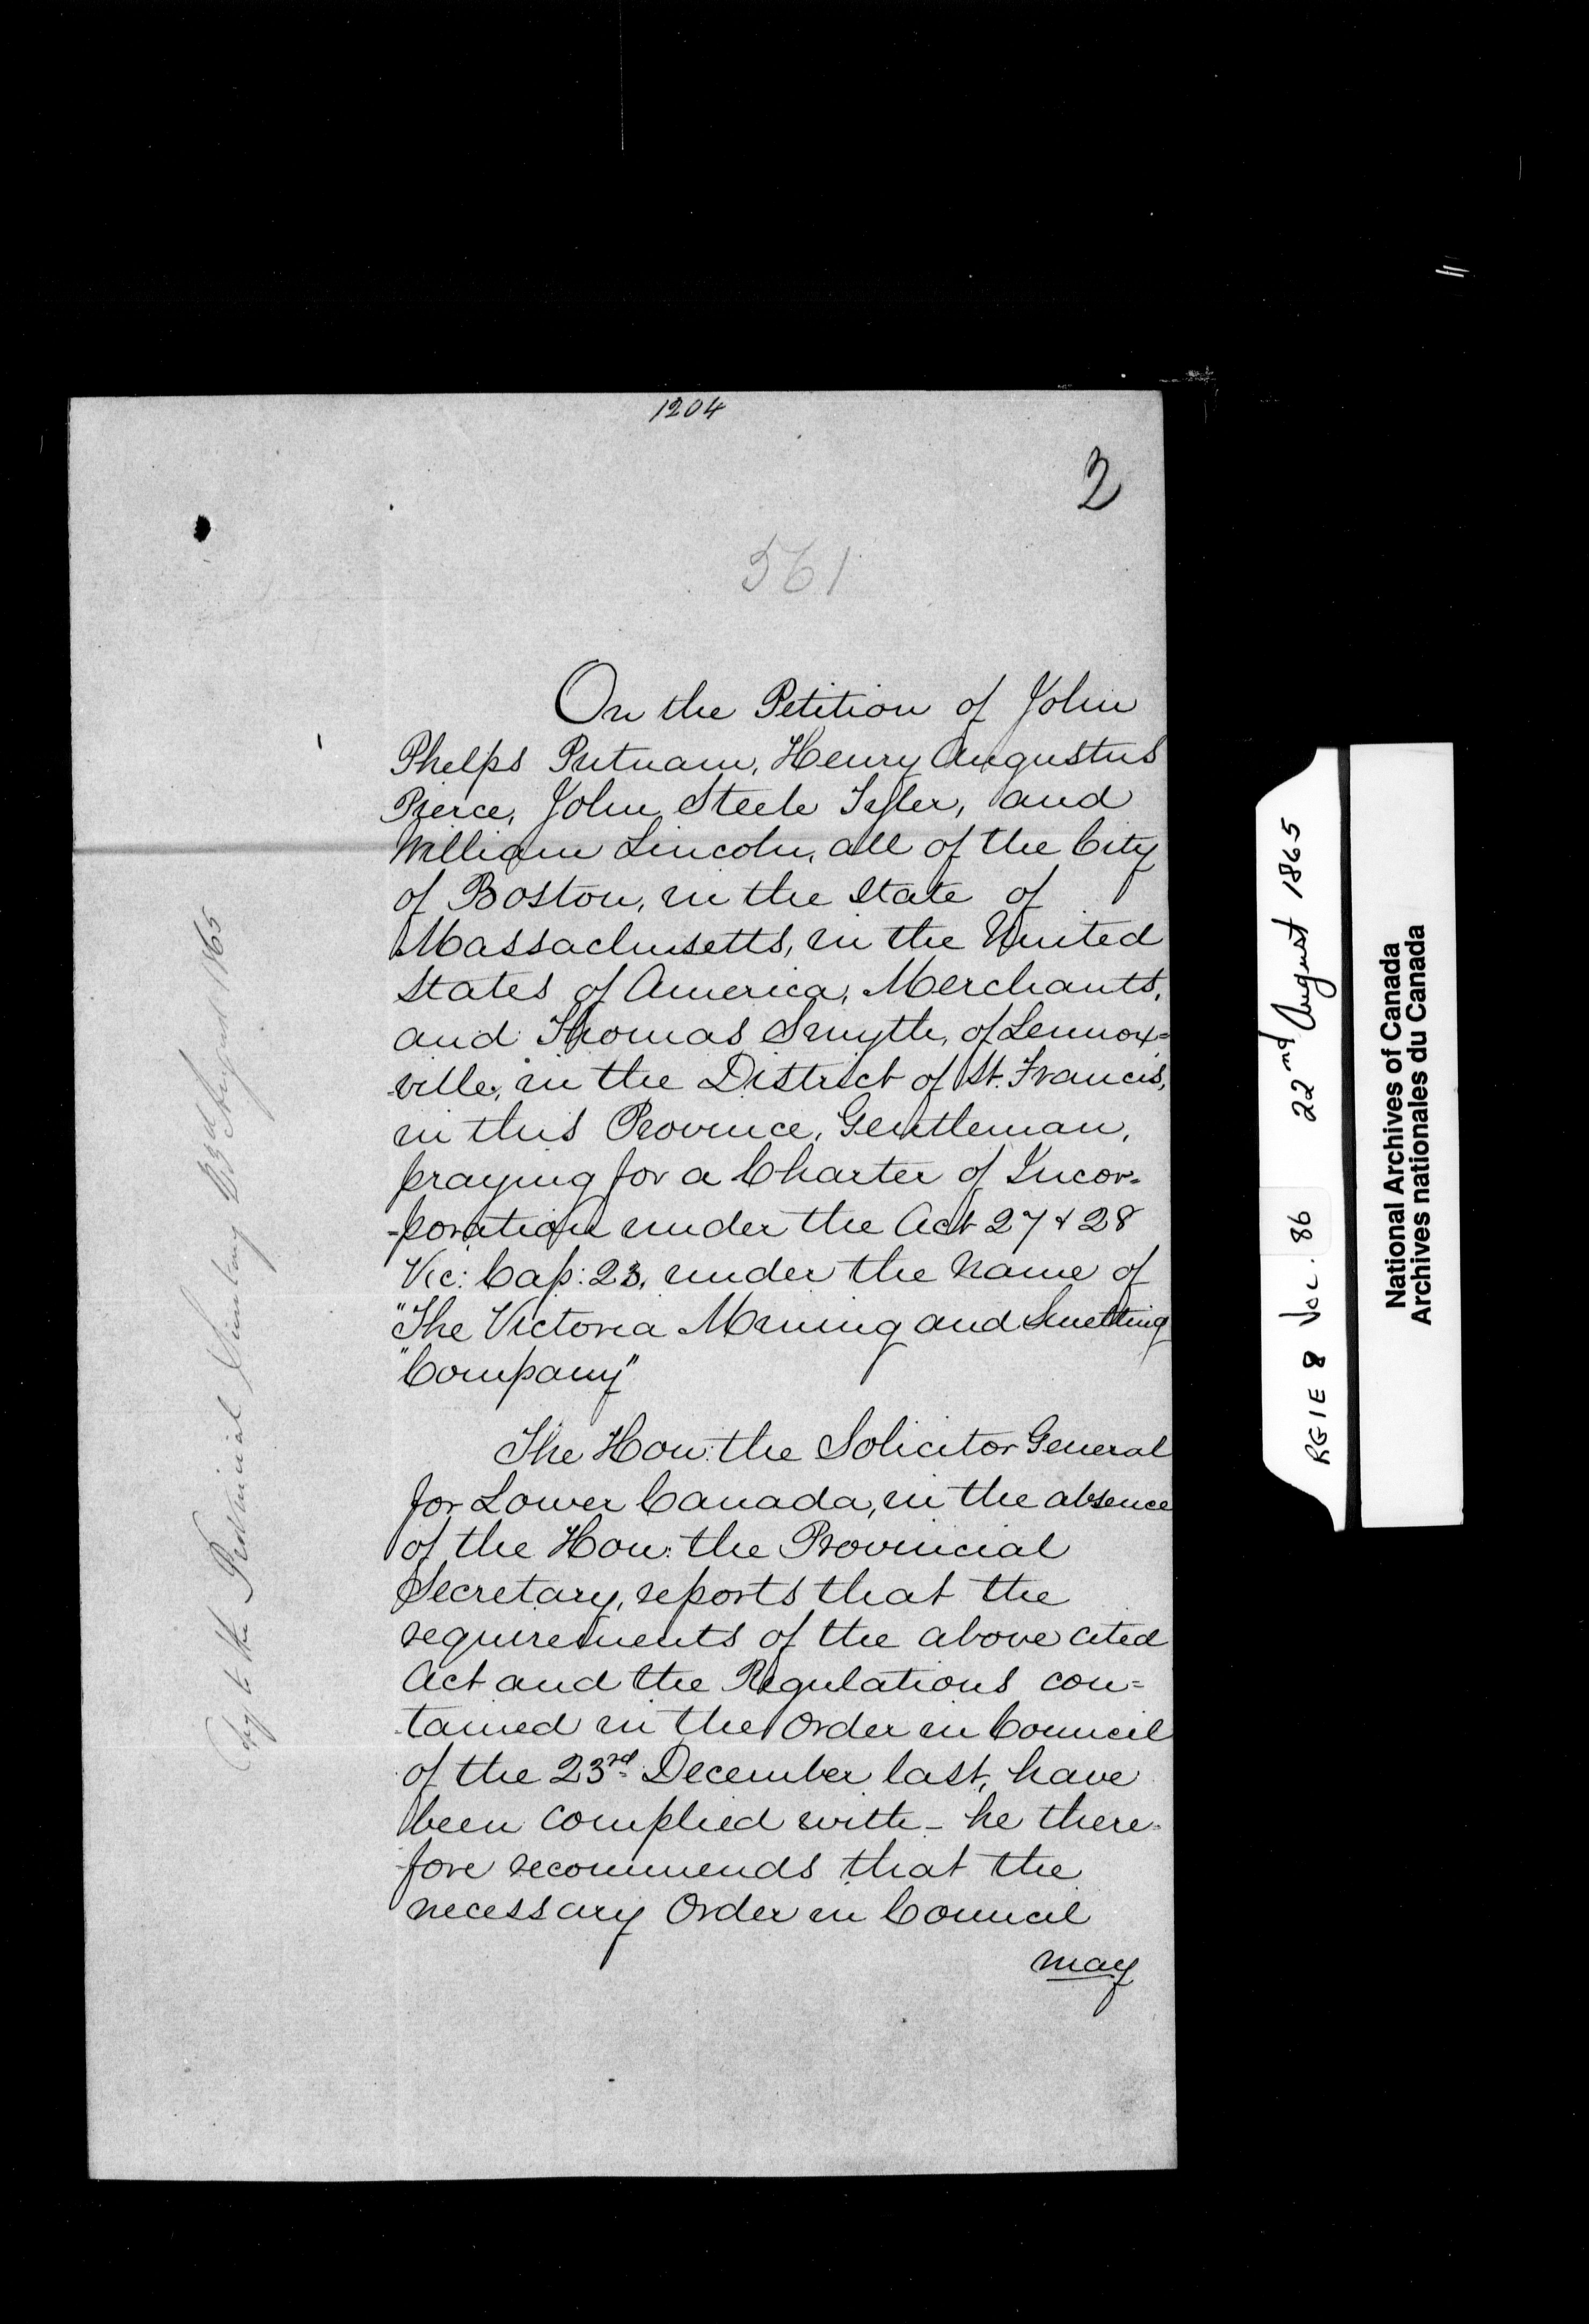 1204
2
561
On the Petition of John
Phelps Putnam, Henry Augustus
Pierce, John Steele Tyler, and
William Lincoln, all of the City
of Boston, in the State of
Massachusetts, in the United
States of America, Merchants,
and Thomas Smyth, of Lennox-
-ville, in the District of St. Francis,
in this Province, Gentleman,
praying for a Charter of Incor-
-poration under the Act 27 & 28
Vic: Cap: 23, under the name of
"The Victoria Mining and Smelting
"Company"
The Hon: the Solicitor General
for Lower Canada, in the absence
of the Hon: the Provincial
Secretary, reports that the
requirements of the above cited
Act and the Regulations con-
-tained in the Order in Council
of the 23rd December last, have
been complied with - he there-
-fore recommends that the
necessary Order in Council
may
Copy to the Provincial Secretary 23rd August 1865
RG1E8 Vol. 86 22nd August 1865
National Archives of Canada
Archives nationales du Canada